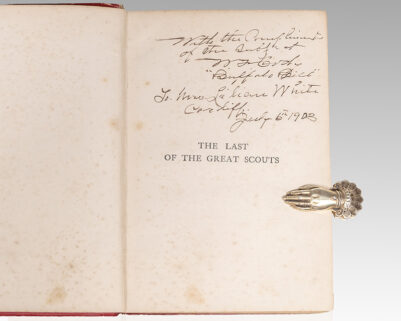 With the Compliments
of the Subject
W F Cody
"Buffalo Bill"
To Mrs Lillian White
Cardiff
July 6th 1903
THE LAST
OF THE GREAT SCOUTS